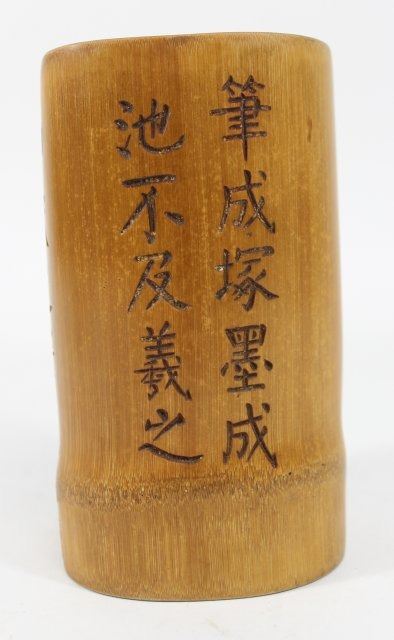 筆成塚墨成
池不及羲之